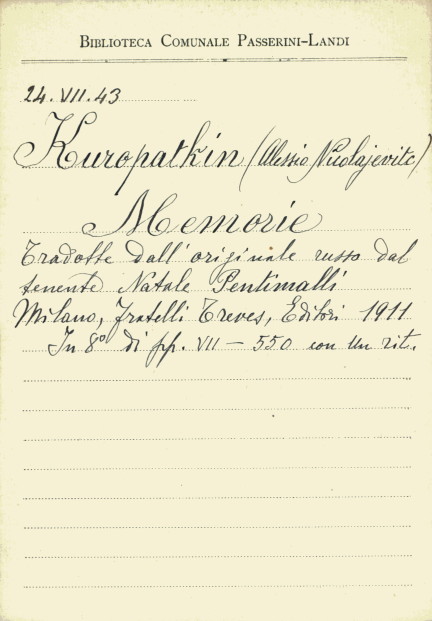 BIBLIOTECA COMUNALE PASSERINI-LANDI
24.VII.43
Kuropatkin (Alessio Nicolajevitc)
Memorie
Tradotte dall'originale russo dal
tenente Natale Pentimalli
Milano, Fratelli Treves, Editori 1911
In 8º di pp. VII - 550 con un rit.